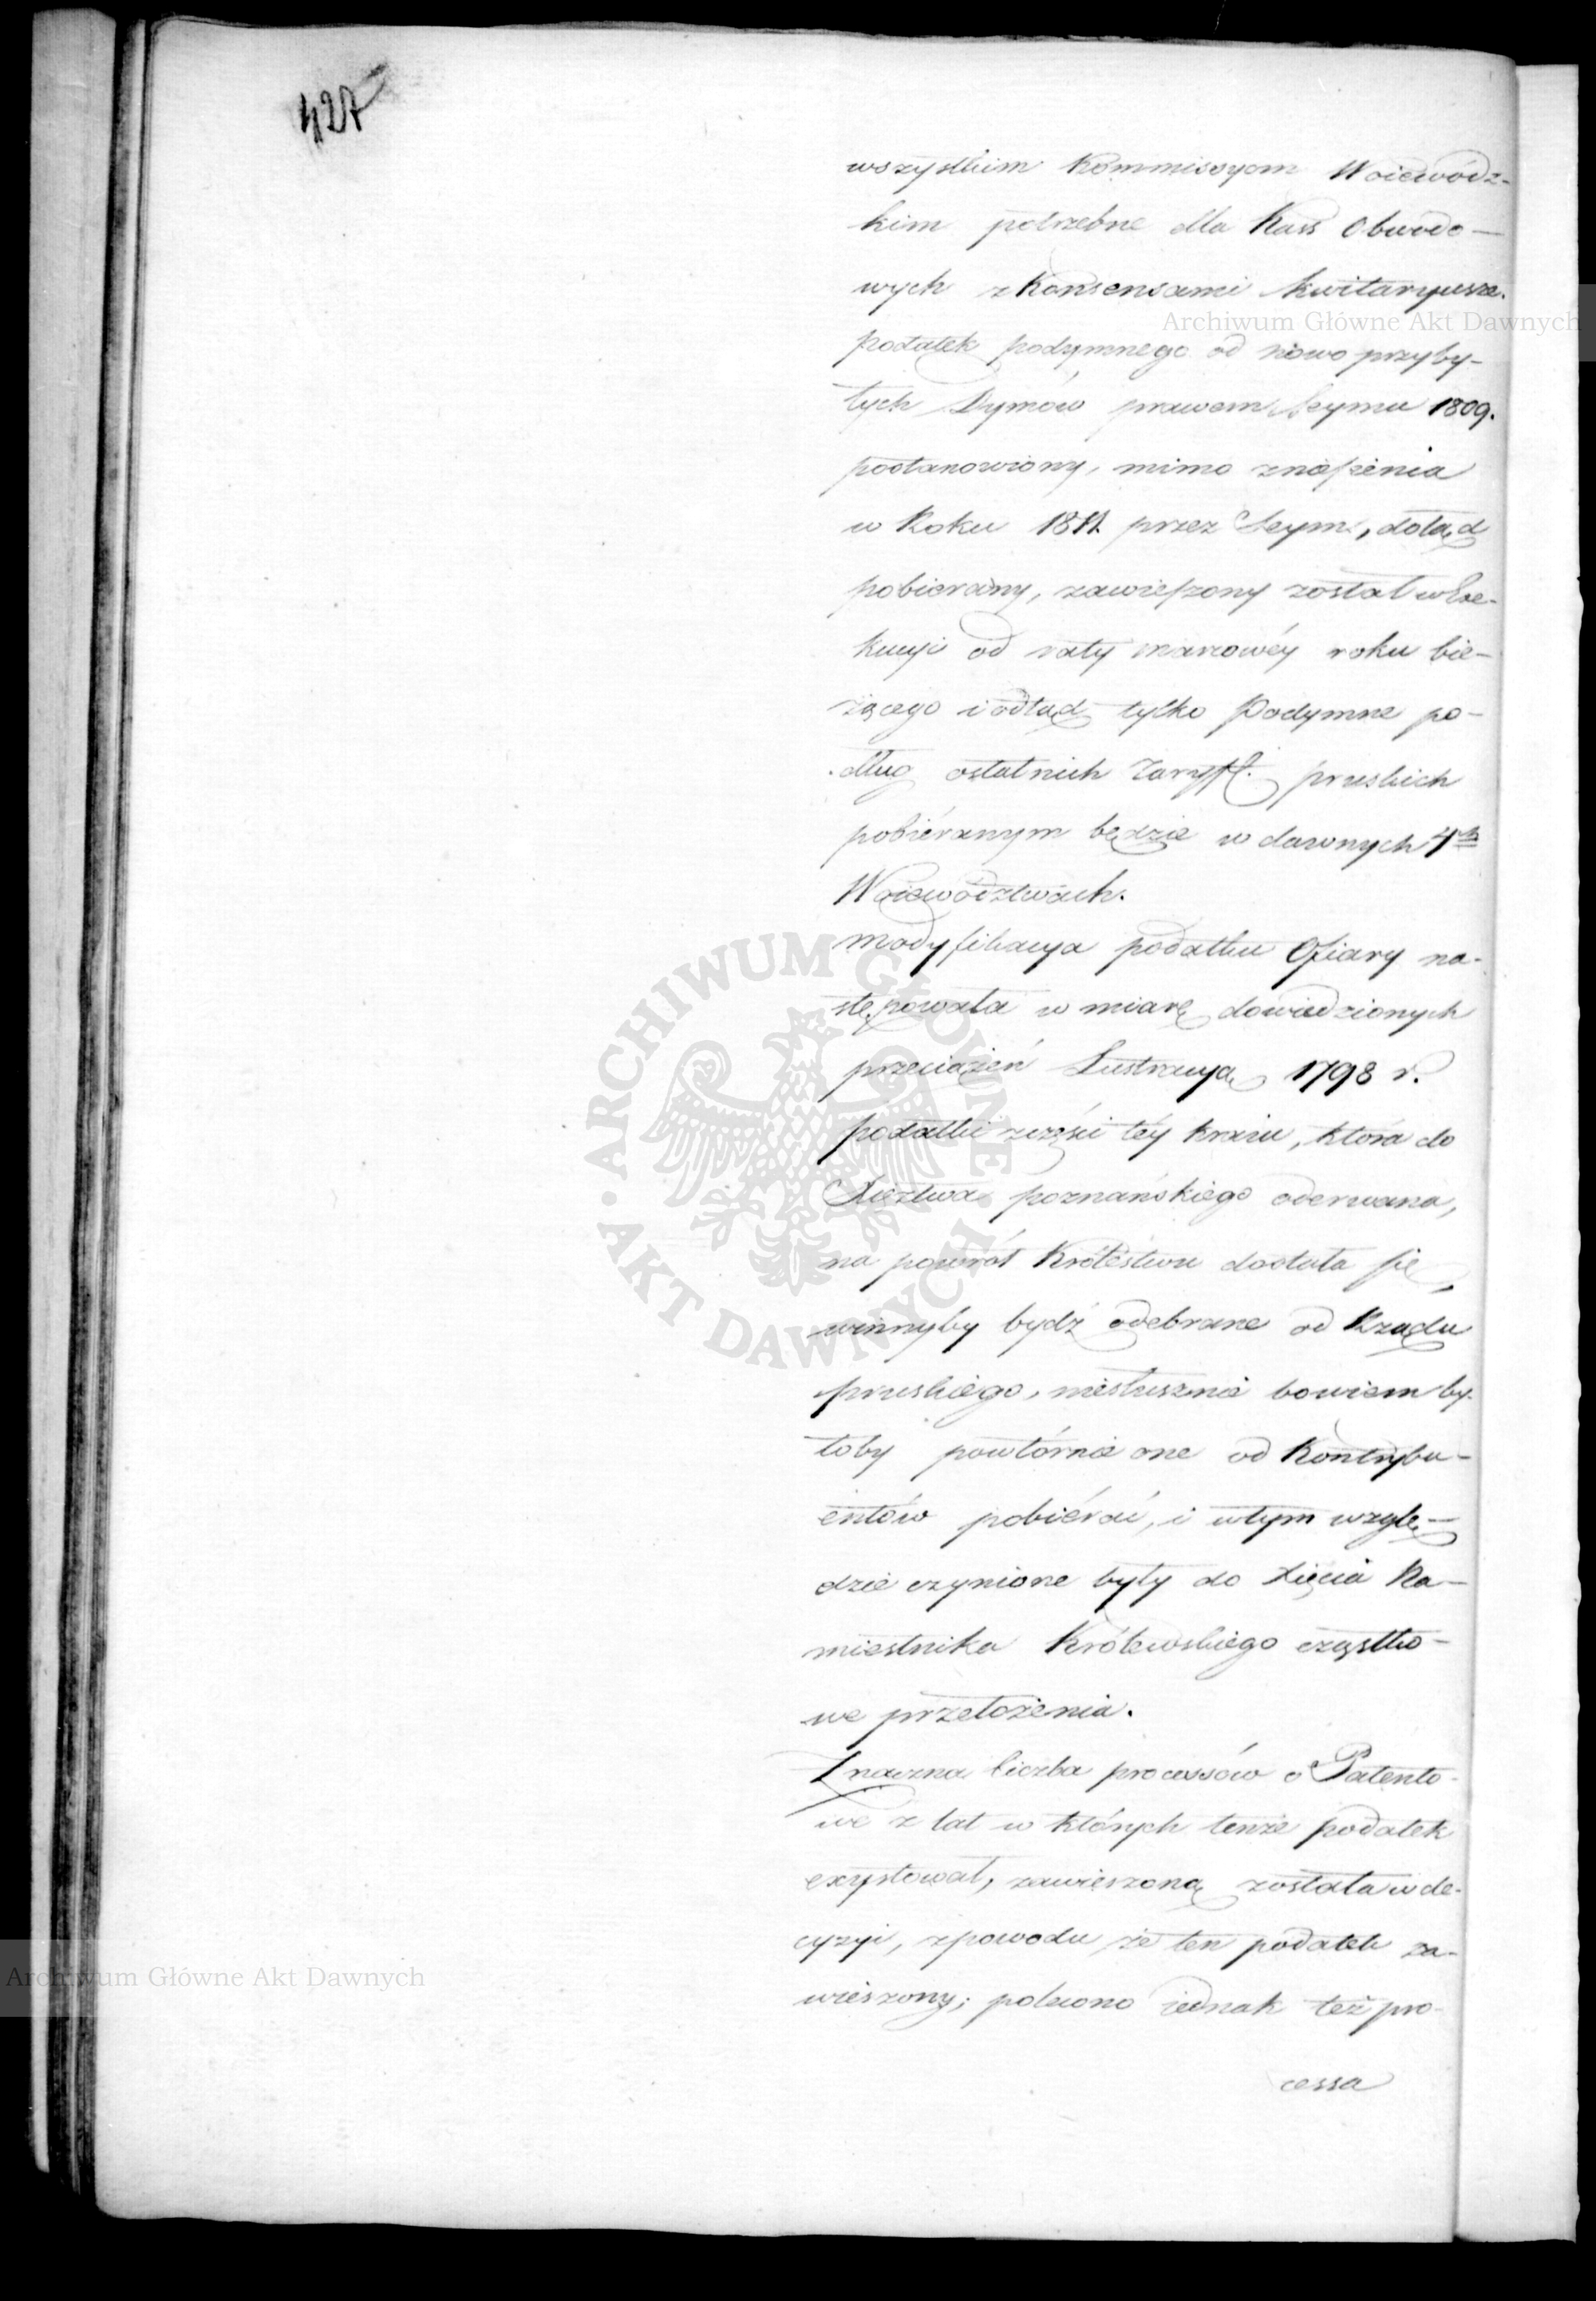 427
wszystkim Kommissyom Woiewódz-
kim potrzebne dla Kass Obwodo-
wych z Konsensami kwitaryusze.
Archiwum Główne Akt Dawnych
podatek podymnego od nowo przyby-
łych Dymów prawem Seymu 1809.
postanowiony, mimo zniesienia
w Roku 1811 przez Seym, dotąd
pobierany, zawieszony został w Exe-
kucyi od raty marcowéy roku bie-
żącego i odtąd tylko Podymne po-
dług ostatnich Taryff. pruskich
pobiéranym będzie w dawnych 4ch
Woiewództwach.
modyfikacya podatku Ofiary na-
stępowała w miarę dowiedzionych
przeciążeń Lustracyą 1798 r.
podatki z części téy kraiu, która do
Xięztwa poznańskiego oderwana,
na powrót Królestwu dostała się,
winnyby bydź odebrane od Rządu
pruskiego, niesłusznie bowiem by-
łoby powtórnie one od Kontrybu-
entów pobiérać, i w tym wzglę-
dzie czynione były do Xięcia Na-
miestnika Królewskiego cząstko-
we przełożenia.
Znaczna liczba processów o Patento-
we z lat w których tenże podatek
exystował, zawieszoną została w de-
cyzyi, z powodu że ten podatek za-
wieszony; polecono iednak też pro-
cessa
Archiwum Główne Akt Dawnych
ARCHIWUM GŁÓWNE · AKT DAWNYCH ·